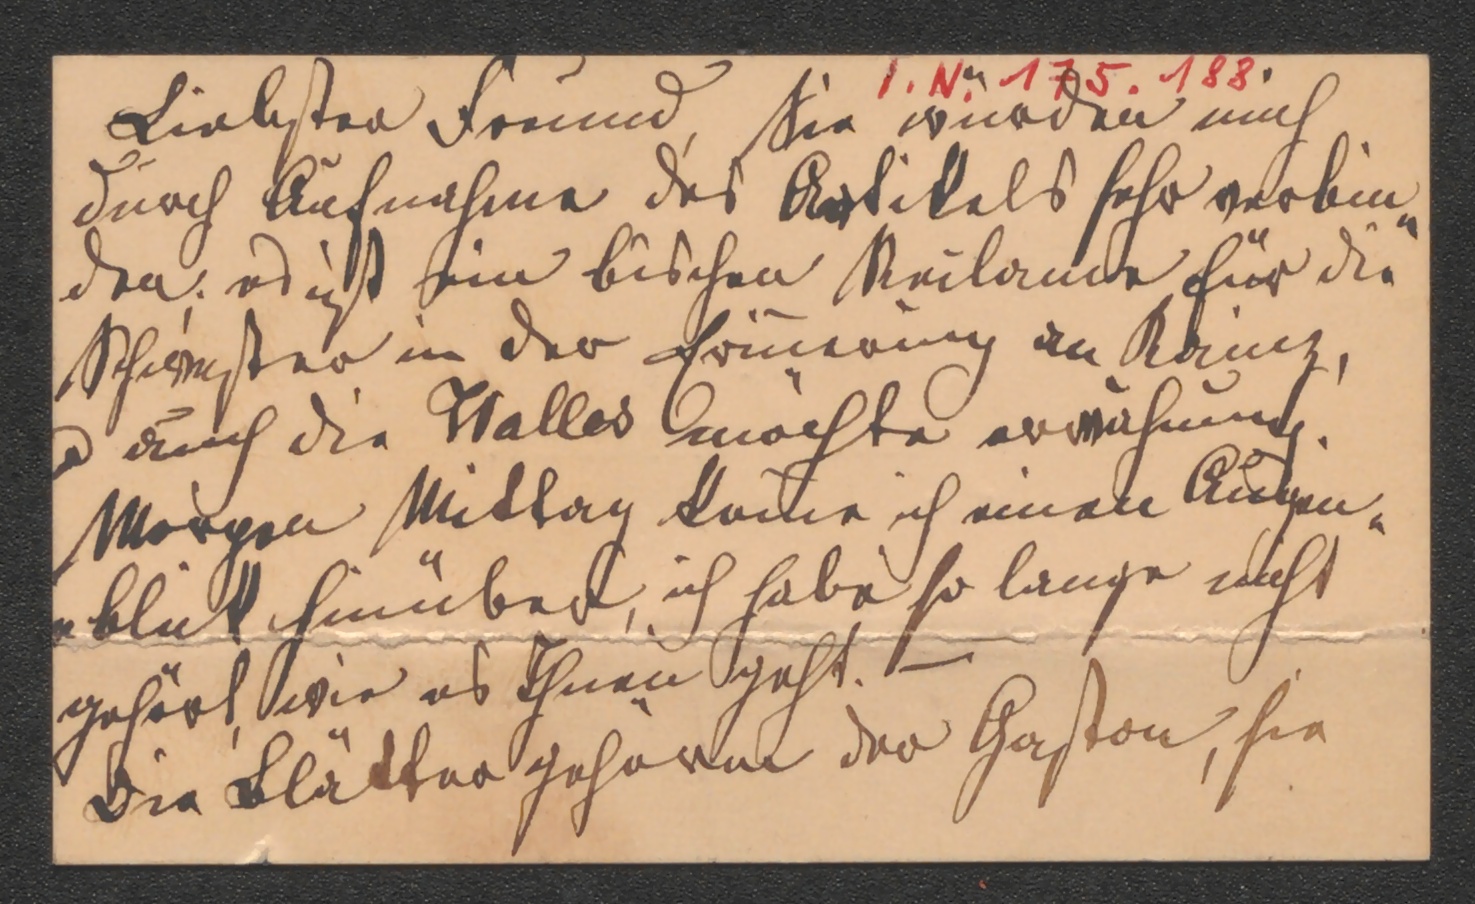 I. N. 175.188.
Liebster Freund, Sie würden mich
durch Aufnahme des Artikels sehr verbin„
den; es ist ein bischen Reclame für die
Schwester in der Erinnerung an Kainz,
auch die Walles möchte
Morgen Mittag kome ich einen Augen„
blick hinüber, ich habe so lange nicht
gehört, wie es Ihnen geht. —
Die Blätter gehören der Gaston, sie